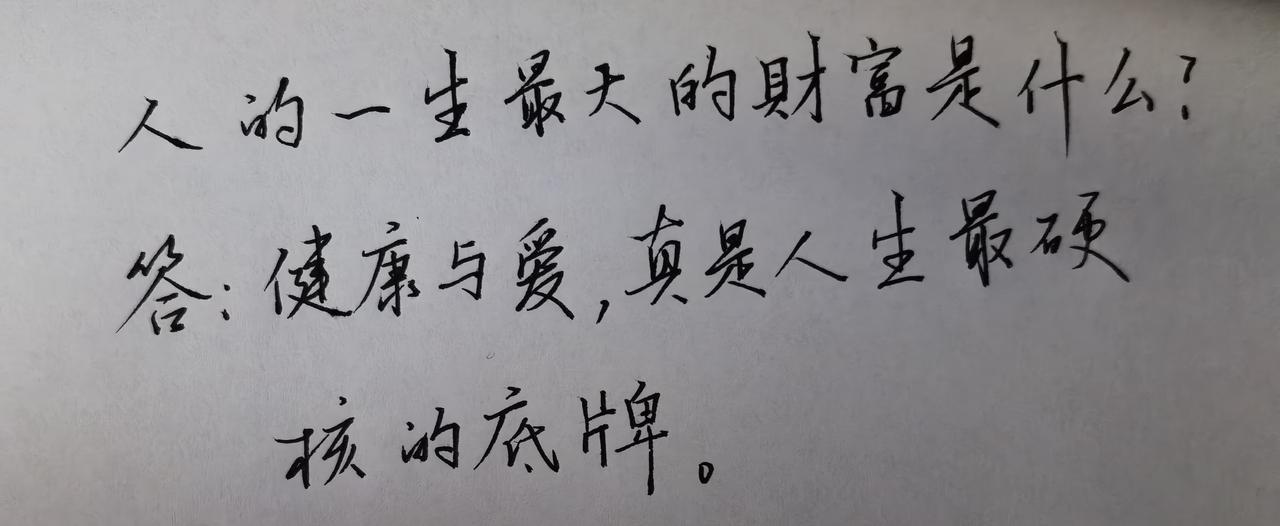 人的一生最大的財富是什么?
答:健康与爱,真是人生最硬
核的底牌。